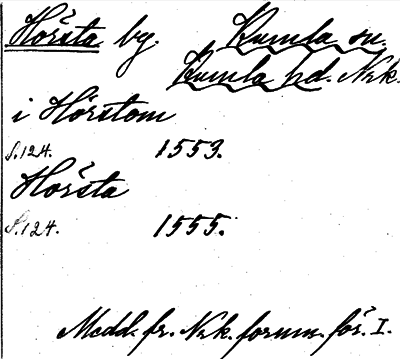 Hörsta by. Kumla sn.
Kumla hd. Nrk.
i Hörstom
S.124. 1553.
Hörsta
S.124. 1555.
Medd. fr. Nrk. fornm. för. I.